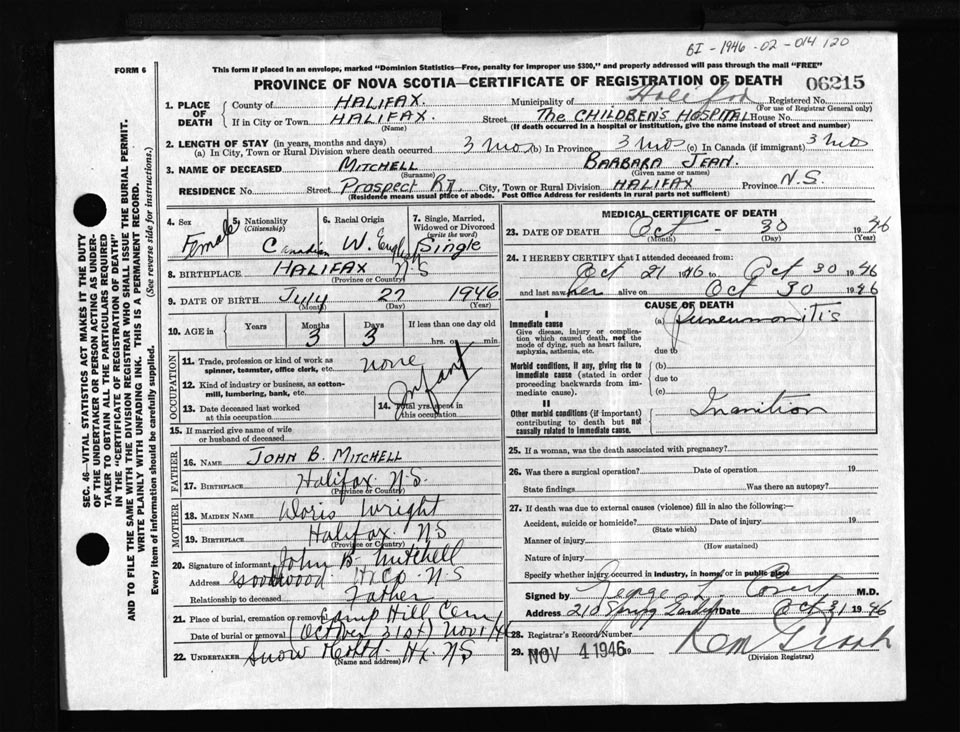 BI-1946-02-014120
FORM 6
This form if placed in an envelope, marked "Dominion Statistics—Free, penalty for improper use $300," and properly addressed will pass through the mail "FREE"
PROVINCE OF NOVA SCOTIA—CERTIFICATE OF REGISTRATION OF DEATH
06215
SEC. 46—VITAL STATISTICS ACT MAKES IT THE DUTY
OF THE UNDERTAKER OR PERSON ACTING AS UNDER-
TAKER TO OBTAIN ALL THE PARTICULARS REQUIRED
IN THE "CERTIFICATE OF REGISTRATION OF DEATH"
AND TO FILE THE SAME WITH THE DIVISION REGISTRAR WHO SHALL ISSUE THE BURIAL PERMIT.
WRITE PLAINLY WITH UNFADING INK. THIS IS A PERMANENT RECORD.
Every item of information should be carefully supplied. (See reverse side for instructions.)
1. PLACE OF DEATH
County of HALIFAX. Municipality of Halifax Registered No.
(For use of Registrar General only)
If in City or Town HALIFAX. Street The CHILDREN'S HOSPITAL House No.
(Name) (If death occurred in a hospital or institution, give the name instead of street and number)
2. LENGTH OF STAY (in years, months and days)
(a) In City, Town or Rural Division where death occurred 3 mos (b) In Province 3 mos (c) In Canada (if immigrant) 3 mos
3. NAME OF DECEASED MITCHELL BARBARA JEAN.
(Surname) (Given name or names)
RESIDENCE No. Street Prospect Rd. City, Town or Rural Division HALIFAX Province N.S.
(Residence means usual place of abode. Post Office Address for residents in rural parts not sufficient)
4. Sex Female
5. Nationality (Citizenship) Canadian
6. Racial Origin W. English
7. Single, Married, Widowed or Divorced (write the word) Single
8. BIRTHPLACE HALIFAX N S
(Province or Country)
9. DATE OF BIRTH July 27 1946
(Month) (Day) (Year)
10. AGE in Years Months Days If less than one day old
3 3 hrs. or min.
OCCUPATION
11. Trade, profession or kind of work as
spinner, teamster, office clerk, etc. none
12. Kind of industry or business, as cotton-
mill, lumbering, bank, etc. Infant
13. Date deceased last worked
at this occupation
14. Total yrs. spent in
this occupation
15. If married give name of wife
or husband of deceased
FATHER
16. NAME JOHN B. MITCHELL
17. BIRTHPLACE Halifax N.S.
(Province or Country)
MOTHER
18. MAIDEN NAME Doris Wright
19. BIRTHPLACE Halifax NS
(Province or Country)
20. Signature of informant John B. Mitchell
Address Goodwood Hfx Co N S
Relationship to deceased Father
21. Place of burial, cremation or removal Camp Hill Cem
Date of burial or removal (October 31st) Nov 1/46
22. UNDERTAKER Snow Hx. N.S
(Name and address)
MEDICAL CERTIFICATE OF DEATH
23. DATE OF DEATH Oct - 30 1946
(Month) (Day) (Year)
24. I HEREBY CERTIFY that I attended deceased from:
Oct 21 1946 to Oct 30 1946
and last saw her alive on Oct 30 1946
CAUSE OF DEATH
I
Immediate cause (a) Pneumonitis
Give disease, injury or complica-
tion which caused death, not the
mode of dying, such as heart failure,
asphyxia, asthenia, etc. due to
Morbid conditions, if any, giving rise to (b)
immediate cause (stated in order due to
proceeding backwards from im-
mediate cause). (c)
II
Other morbid conditions (if important) Inanition
contributing to death but not
causally related to immediate cause.
25. If a woman, was the death associated with pregnancy?
26. Was there a surgical operation? Date of operation 19
State findings Was there an autopsy?
27. If death was due to external causes (violence) fill in also the following:—
Accident, suicide or homicide? Date of injury 19
(State which)
Manner of injury
(How sustained)
Nature of injury
Specify whether injury occurred in industry, in home, or in public place
Signed by George M.D.
Address 210 Spring Garden Date Oct 31 1946
28. Registrar's Record Number
29. NOV 4 1946 19
(Division Registrar)